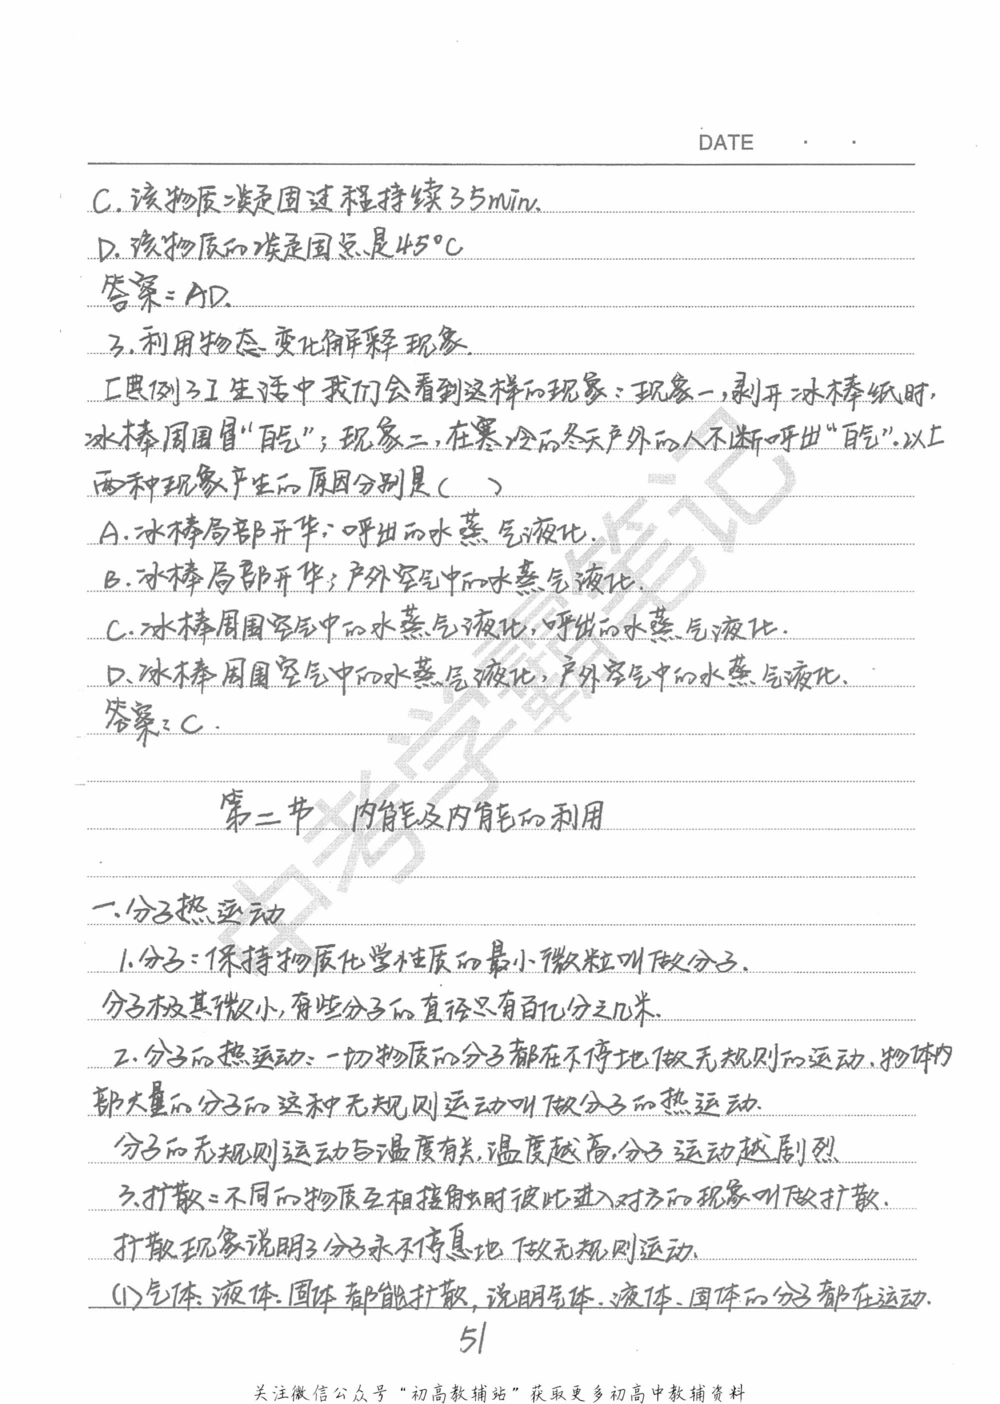 DATE · ·
C.该物质凝固过程持续35min.
D.该物质的凝固点是45°C
答案:AD.
3.利用物态变化解释现象.
[典例3]生活中我们会看到这样的现象:现象一,剥开冰棒纸时,
冰棒周围冒“白气”;现象二,在寒冷的冬天户外的人不断呼出“白气”.以上
两种现象产生的原因分别是( )
A.冰棒局部升华;呼出的水蒸气液化.
B.冰棒局部升华;户外空气中的水蒸气液化.
C.冰棒周围空气中的水蒸气液化,呼出的水蒸气液化.
D.冰棒周围空气中的水蒸气液化,户外空气中的水蒸气液化.
答案:C.
第二节 内能及内能的利用
一.分子热运动
1.分子:保持物质化学性质的最小微粒叫做分子.
分子极其微小,有些分子的直径只有百亿分之几米.
2.分子的热运动:一切物质的分子都在不停地做无规则的运动.物体内
部大量的分子的这种无规则运动叫做分子的热运动.
分子的无规则运动与温度有关,温度越高,分子运动越剧烈
3.扩散:不同的物质互相接触时彼此进入对方的现象叫做扩散.
扩散现象说明了分子永不停息地做无规则运动.
(1)气体、液体、固体都能扩散,说明气体、液体、固体的分子都在运动.
51
中考学霸笔记
关注微信公众号“初高教辅站”获取更多初高中教辅资料